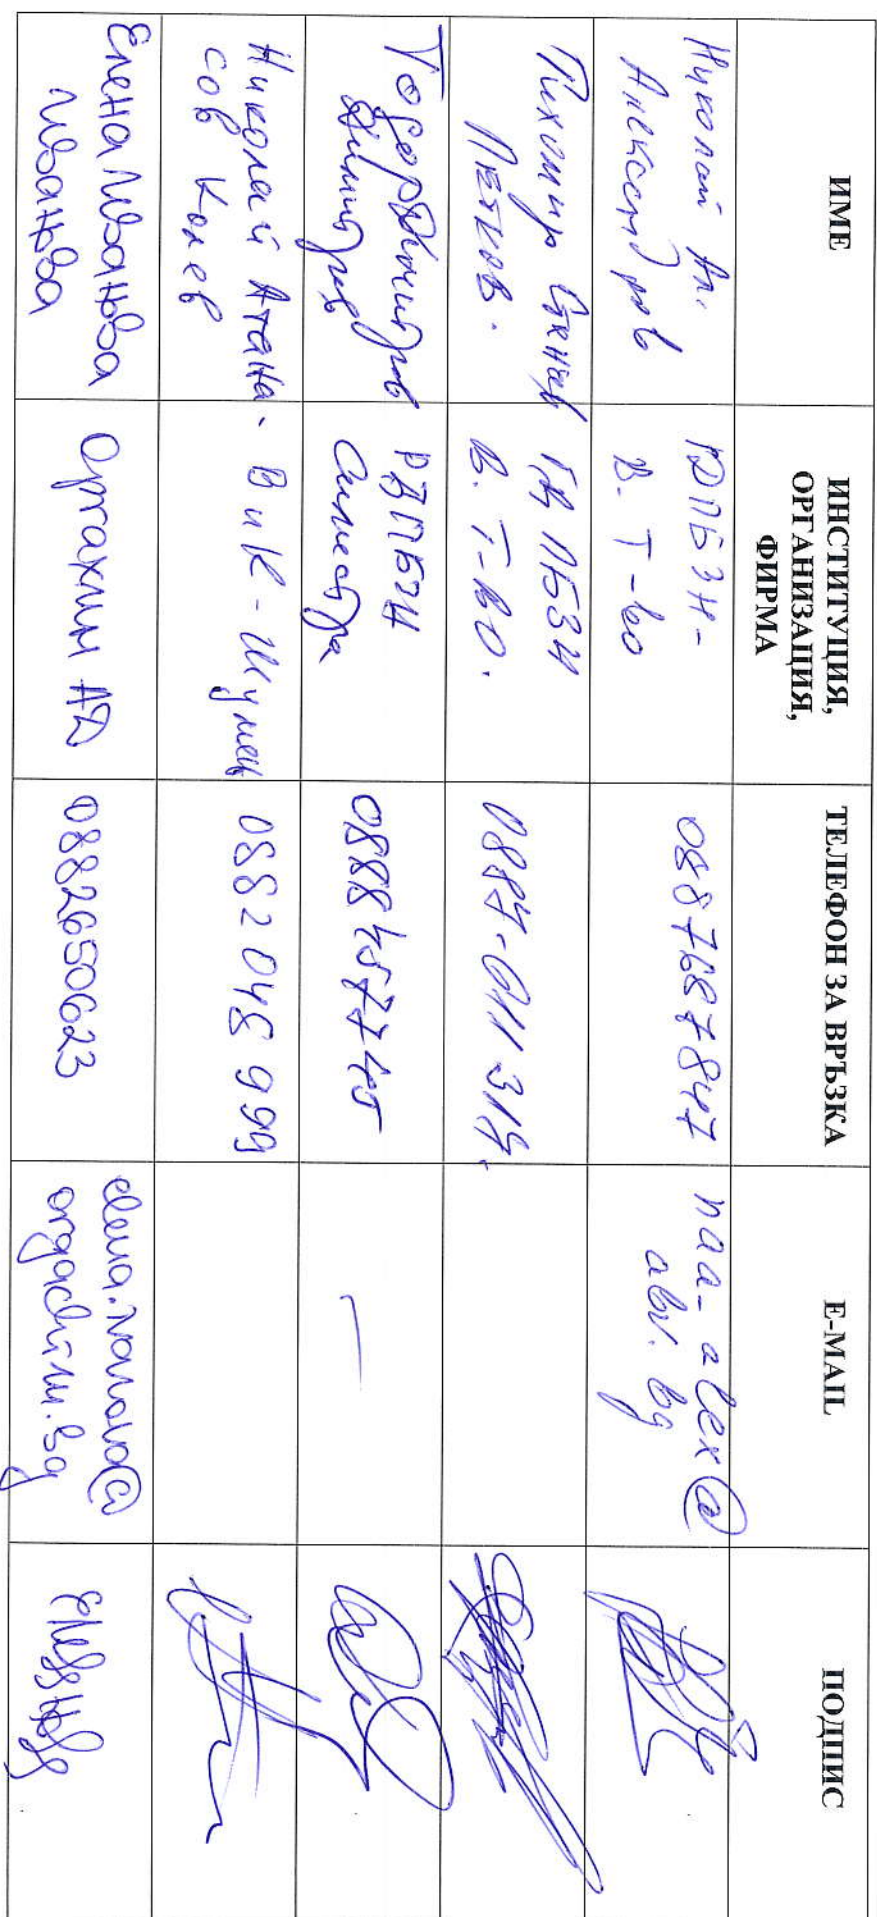 ИМЕ
ИНСТИТУЦИЯ,
ОРГАНИЗАЦИЯ,
ФИРМА
ТЕЛЕФОН ЗА ВРЪЗКА
E-MAIL
ПОДПИС
Николай Ал.
Александров
В. Т-во
0887687847
naa_alex@
abv.bg
Тихомир
Петков.
ПБЗН
В. Т-во.
0887-011 319.
Тодор Димитров
Димитров
РДПБЗН
Силистра
0888457745
—
Николай Атана-
сов Колев
ВиК - Шумен
0882048999
Елена Иванова
Иванова
Оргахим АД
0882650623
elena.ivanova@
orgachim.bg